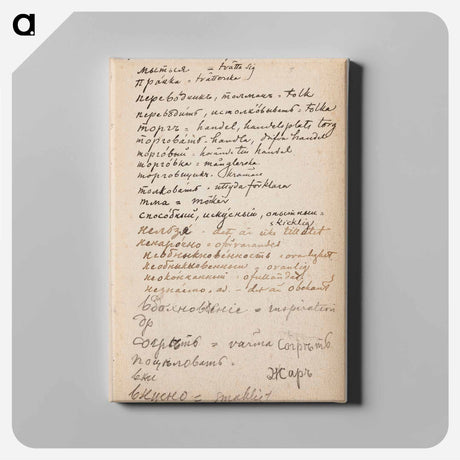 a
мыться = tvätta sig
прачка = tvätterska
переводчикъ, толмачъ = tolk
переводить, истолковывать = tolka
торгъ = handel, handelsplats, torg
торговать = handla, drifva handel
торговый = hörande till handel
торговка = månglerska
торговщикъ = Krämare
толковать = uttyda förklara
тма = mörker
способный, искусный, опытный =
skicklig
нельзя = det är icke tillåtet
ненарочно = oförvarandes
необыкновенность = ovanlighet
необыкновенный = ovanlig
неоконченный = ofulländad
det är obekant
вдохновенiе = inspiration
др
согрѣть = värma Согрѣть
поцѣловать
Жаръ
вкусно = smakligt